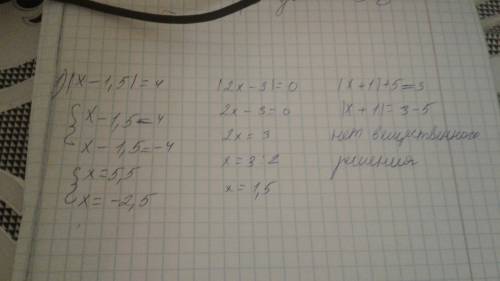 1) |x-1,5|=4
{ x-1,5=4
x-1,5=-4
{ x=5,5
x=-2,5
|2x-3|=0
2x-3=0
2x=3
x=3:2
x=1,5
|x+1|+5=3
|x+1|=3-5
нет вещественного
решения